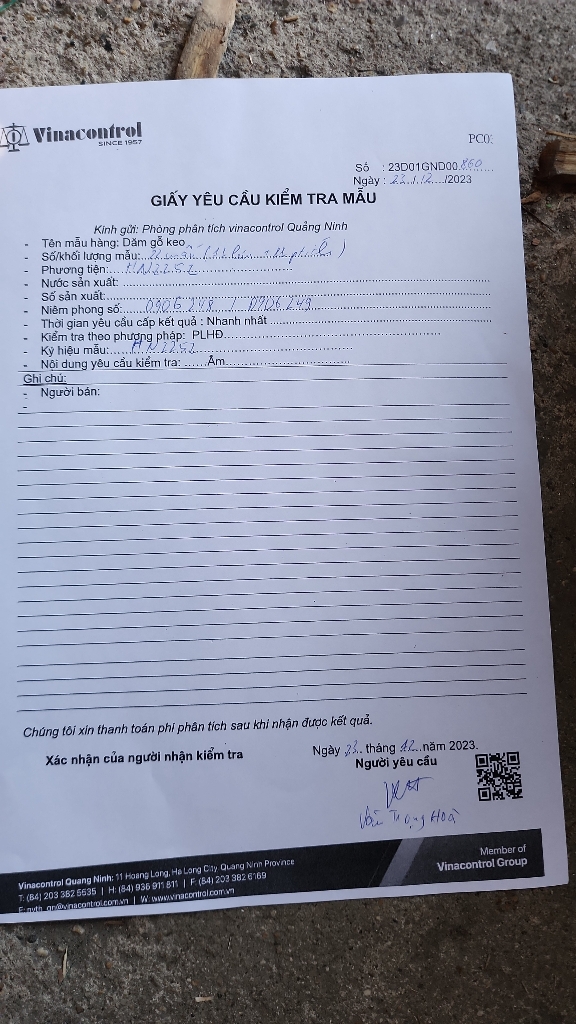 Vinacontrol
SINCE 1957
PC0
Số : 23D01GND00.860
Ngày : 23./.12./2023
GIẤY YÊU CẦU KIỂM TRA MẪU
Kính gửi: Phòng phân tích vinacontrol Quảng Ninh
- Tên mẫu hàng: Dăm gỗ keo
- Số/khối lượng mẫu:
- Phương tiện: HN2252
- Nước sản xuất:
- Số sản xuất:
- Niêm phong số: 0906248 / 0906249
- Thời gian yêu cầu cấp kết quả : Nhanh nhất
- Kiểm tra theo phương pháp: PLHĐ
- Ký hiệu mẫu: HN2252
- Nội dung yêu cầu kiểm tra: ......Ẩm
Ghi chú:
- Người bán:
-
Chúng tôi xin thanh toán phí phân tích sau khi nhận được kết quả.
Ngày 23. tháng 12..năm 2023.
Xác nhận của người nhận kiểm tra
Người yêu cầu
Trọng Hoà
Member of
Vinacontrol Group
Vinacontrol Quang Ninh: 11 Hoang Long, Ha Long City, Quang Ninh Province
T: (84) 203 382 5635 | H: (84) 936 911 811 | F: (84) 203 382 6169
W: www.vinacontrol.com.vn